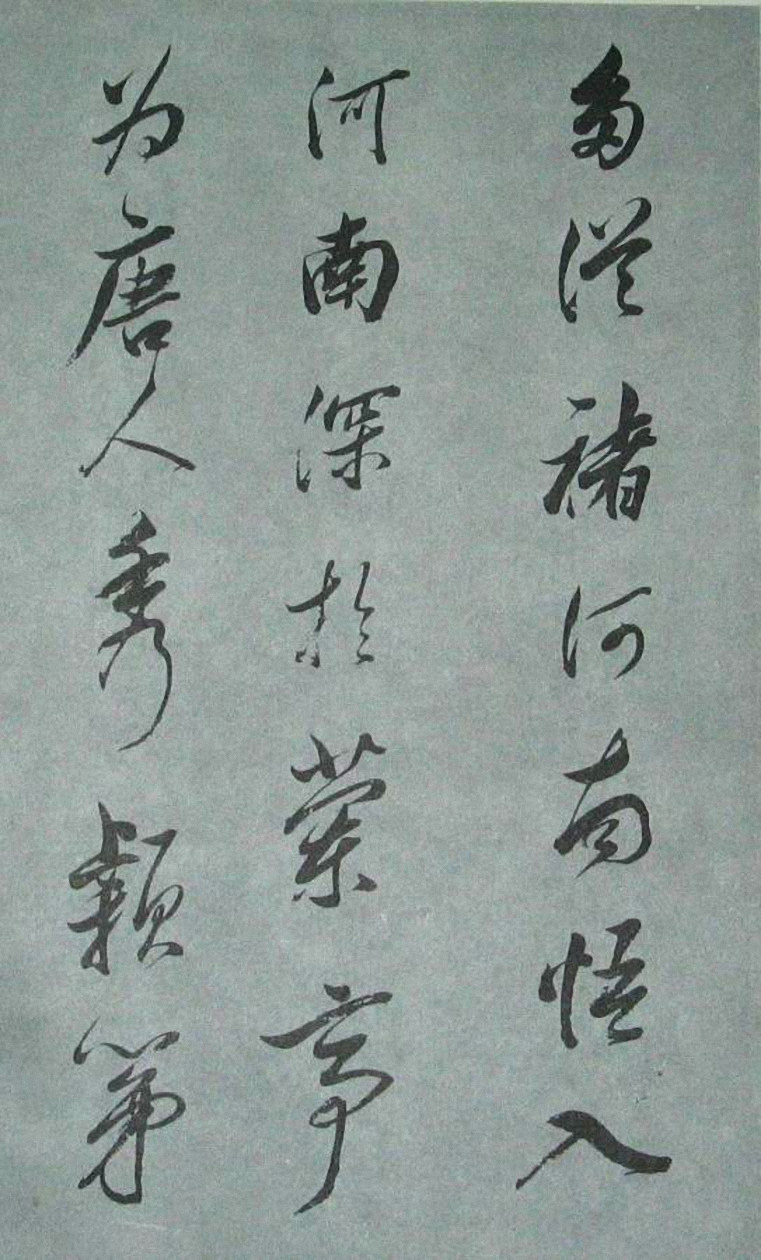 多從褚河南悟入
河南深於蘭亭
为唐人秀穎第